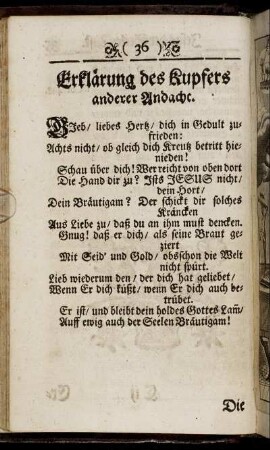 ( 36 )
Erklärung des Kupfers
anderer Andacht.
GIeb/ liebes Hertz/ dich in Gedult zu-
frieden:
Achts nicht/ ob gleich dich Kreutz betritt hie-
nieden!
Schau über dich! Wer reicht von oben dort
Die Hand dir zu? Ists JESUS nicht/
dein Hort/
Dein Bräutigam? Der schickt dir solches
Kräncken
Aus Liebe zu/ daß du an ihm must dencken.
Gnug! daß er dich/ als seine Braut ge-
ziert
Mit Seid' und Gold/ obsschon die Welt
nicht spürt.
Lieb wiederum den/ der dich hat geliebet/
Wenn Er dich küßt/ wenn Er dich auch be-
trübet.
Er ist/ und bleibt dein holdes Gottes Lam̃/
Auff ewig auch der Seelen Bräutigam!
Die